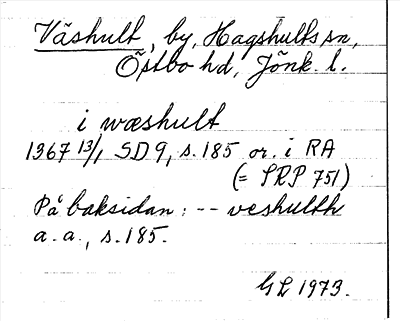 Väshult, by, Hagshults sn,
Östbo hd, Jönk. l.
i wæshult
1367 13/1 SD 9, s. 185 or. i RA
(= SRP 751)
På baksidan: -- veshulth
a. a., s. 185.
GL 1973.